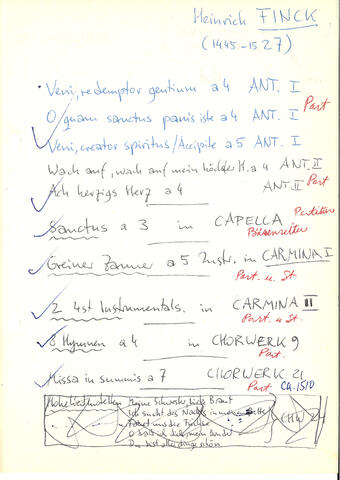 Heinrich FINCK
(1445-1527)
Veni, redemptor gentium a4 ANT. I
O quam sanctus panis iste a4 ANT. I Part
Veni, creator spiritus/Accipite a5 ANT. I
Wach auf, wach auf mein höchste H. a 4 ANT. II
Ach herzigs Herz a 4 ANT. II Part
Sanctus a 3 in CAPELLA Partitur
Greiner Zanner a5 Instr. in CARMINA I
Part. u. St.
2 4st Instrumentals. in CARMINA III
Part. u St.
8 Hymnen a 4 in CHORWERK 9
Part.
Missa in summis a 7 CHORWERK 21
Part ca. 1510
Hoheliedmotetten Meine Schwester, liebe Braut
Ich sucht des Nachts in meinem Bette
Fahet uns die Füchse